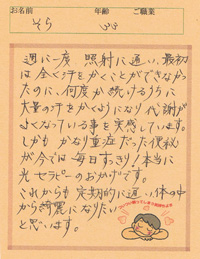 お名前 年齢 ご職業
そら 33
週に一度 照射に通い、最初
は全く汗をかくことができなかっ
たのに、何度か続けるうちに
大量の汗をかくようになり代謝が
よくなっている事を実感しています。
しかもかなり重症だった便秘
が今では毎日すっきり!本当に
光セラピーのおかげです。
これからも定期的に通い体の中
から綺麗になりたい
と思います。